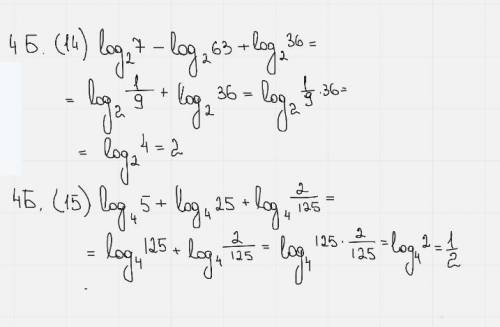 4Б. (14) log₂7 − log₂63 + log₂36 =
= log₂ 1/9 + log₂ 36 = log₂ 1/9 · 36 =
= log₂ 4 = 2
4Б. (15) log₄5 + log₄25 + log₄ 2/125 =
= log₄ 125 + log₄ 2/125 = log₄ 125 · 2/125 = log₄ 2 = 1/2